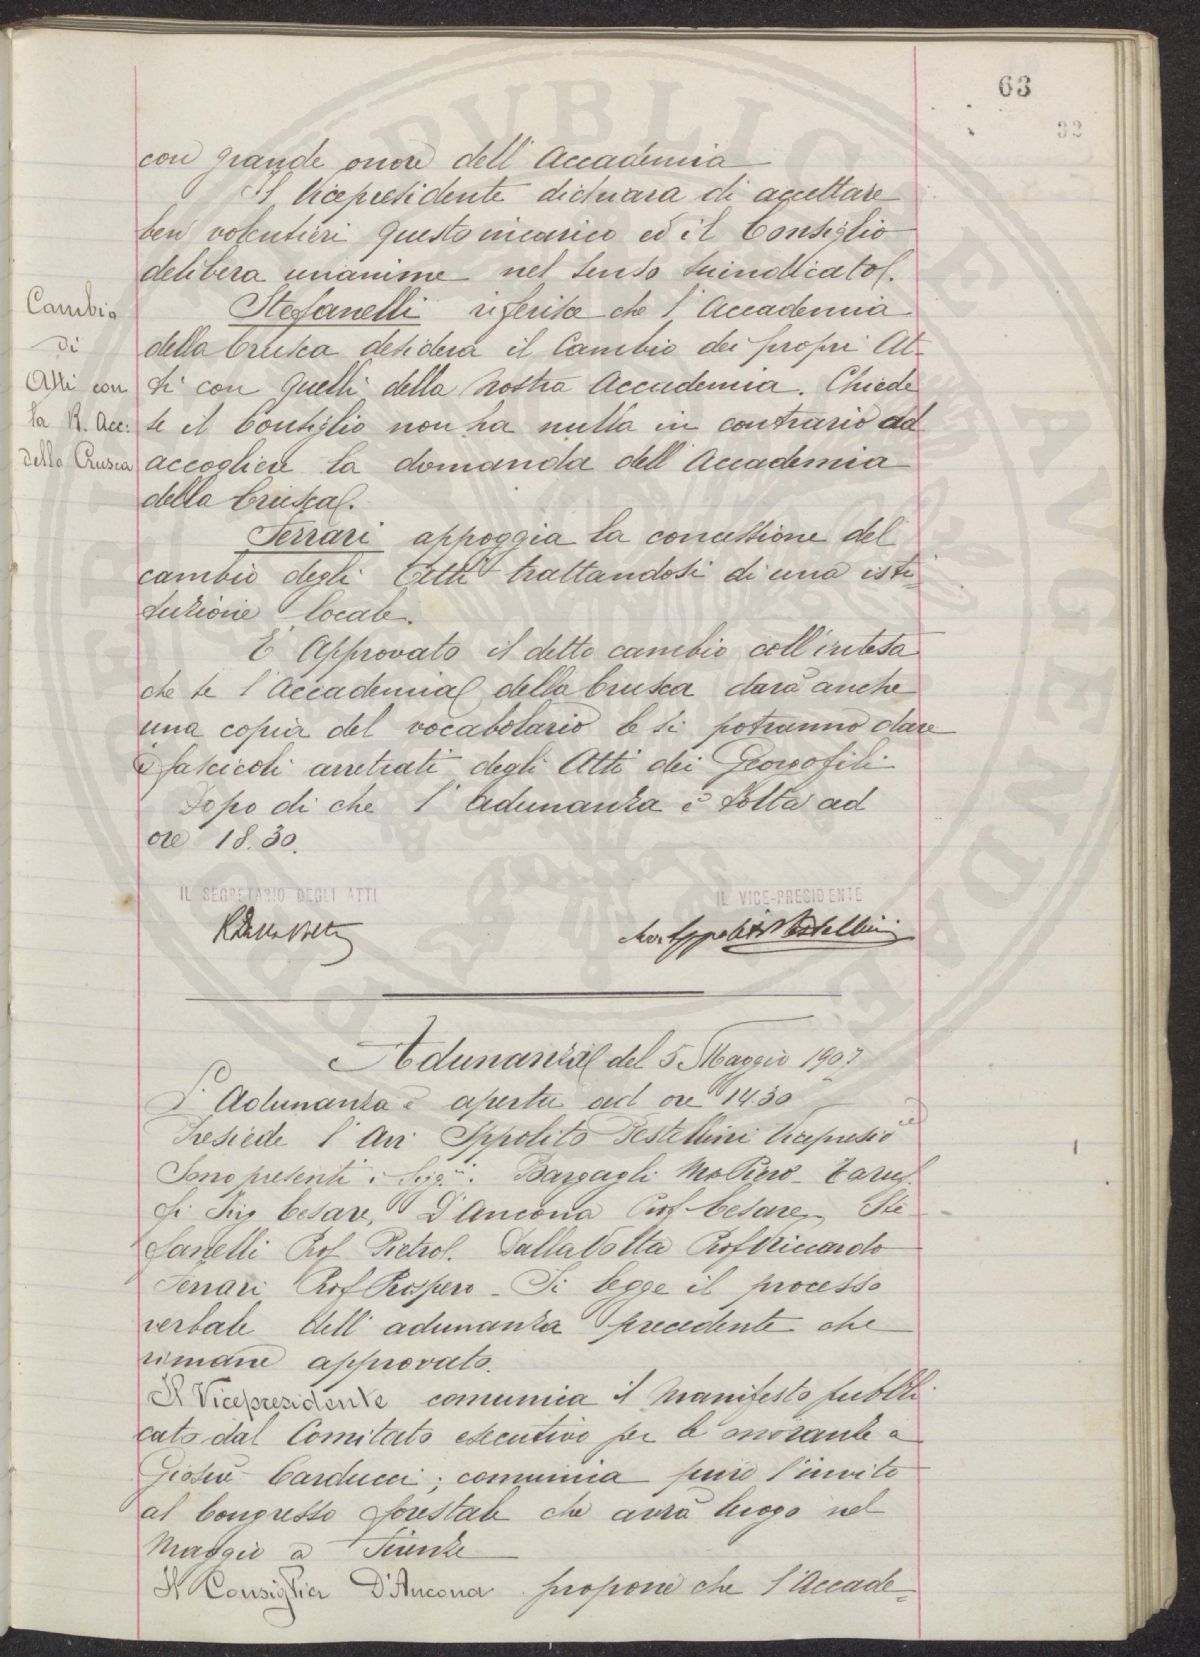 63
32
con grande onore dell'Accademia
Il Vicepresidente dichiara di accettare
ben volentieri questo incarico ed il Consiglio
delibera unanime nel senso suindicato.
Stefanelli riferisce che l'Accademia
della Crusca desidera il Cambio dei propri At-
ti con quelli della nostra Accademia. Chiede
se il Consiglio non ha nulla in contrario ad
accogliere la domanda dell'Accademia
della Crusca.
Cambio
di
Atti con
la R. Acc:
della Crusca
Ferrari appoggia la concessione del
cambio degli Atti trattandosi di una isti=
tuzione locale.
E' Approvato il detto cambio coll'intesa
che se l'Accademia della Crusca darà anche
una copia del vocabolario le si potranno dare
i fascicoli arretrati degli Atti dei Georgofili.
Dopo di che l'adunanza è sciolta ad
ore 18.30.
IL SEGRETARIO DEGLI ATTI
IL VICE-PRESIDENTE
R Dalla Volta
Avv. Ippolito Pestellini
Adunanza del 5 Maggio 1907
L'Adunanza è aperta ad ore 14.30
Presiede l'Avv Ippolito Pestellini Vicepresid.e
Sono presenti i Sigg.ri: Bargagli M. Piero - Taruf=
fi Ing Cesare, D'Ancona Prof Cesare, Ste
fanelli Prof Pietro. Dalla Volta Prof Riccardo
Ferrari Prof Prospero - Si legge il processo
verbale dell'adunanza precedente che
rimane approvato.
Il Vicepresidente comunica il manifesto pubbli-
cato dal Comitato esecutivo per le onoranze a
Giosuè Carducci; comunica pure l'invito
al Congresso forestale che avrà luogo nel
Maggio a Firenze
Il Consiglier D'Ancona propone che l'Accade=